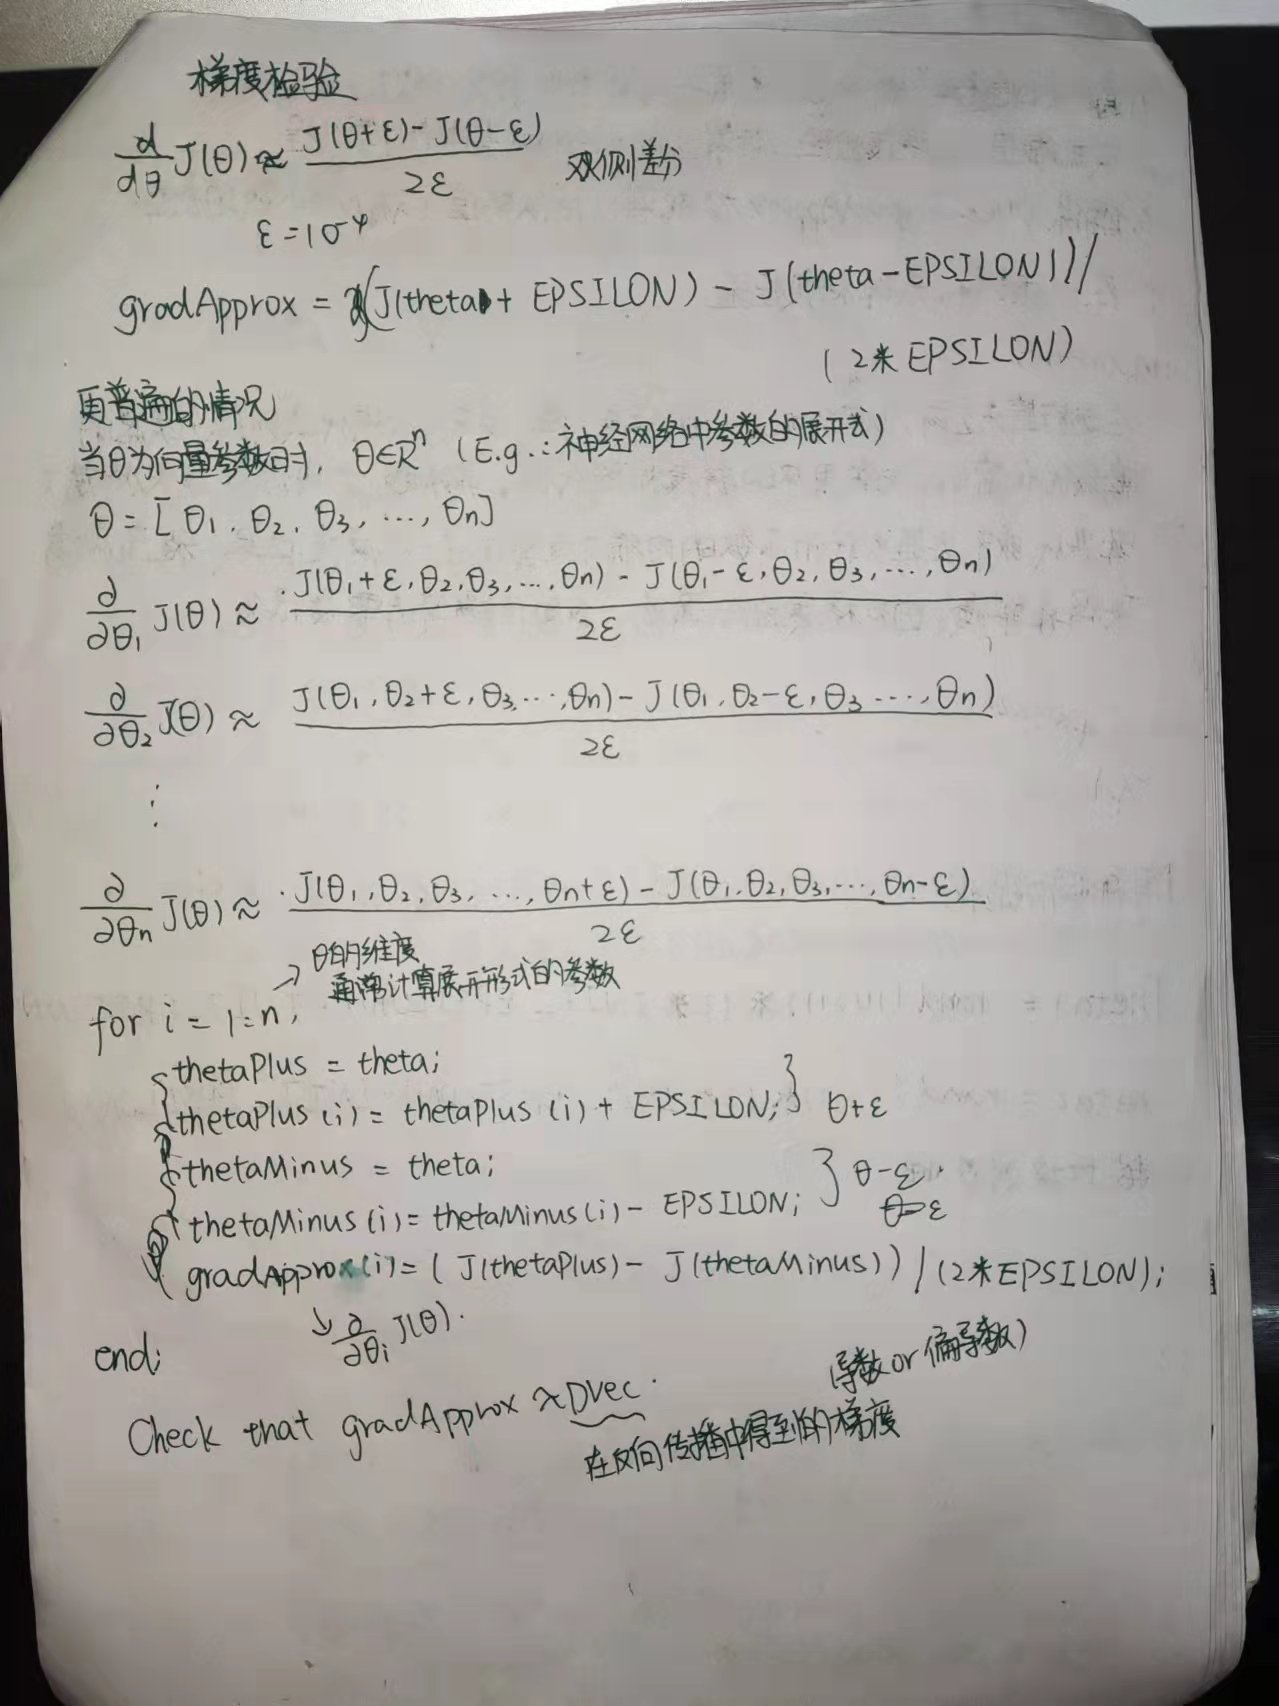 梯度检验
d/dθ J(θ) ≈ (J(θ+ε) - J(θ-ε)) / 2ε 双侧差分
ε = 10⁻⁴
gradApprox = (J(theta + EPSILON) - J(theta - EPSILON)) /
(2*EPSILON)
更普遍的情况
当θ为向量参数时, θ∈Rⁿ (E.g.:神经网络中参数的展开式)
θ = [θ₁, θ₂, θ₃, ..., θn]
∂/∂θ₁ J(θ) ≈ (J(θ₁+ε, θ₂, θ₃, ..., θn) - J(θ₁-ε, θ₂, θ₃, ..., θn)) / 2ε
∂/∂θ₂ J(θ) ≈ (J(θ₁, θ₂+ε, θ₃, ..., θn) - J(θ₁, θ₂-ε, θ₃ ..., θn)) / 2ε
⋮
∂/∂θn J(θ) ≈ (J(θ₁, θ₂, θ₃, ..., θn+ε) - J(θ₁, θ₂, θ₃, ..., θn-ε)) / 2ε
→ θ的维度
通常计算展开形式的参数
for i = 1:n,
thetaPlus = theta;
thetaPlus(i) = thetaPlus(i) + EPSILON; } θ+ε
thetaMinus = theta;
thetaMinus(i) = thetaMinus(i) - EPSILON; } θ-ε
gradApprox(i) = (J(thetaPlus) - J(thetaMinus)) / (2*EPSILON);
↘ ∂/∂θi J(θ).
end;
(导数or偏导数)
Check that gradApprox ≈ DVec.
在反向传播中得到的梯度